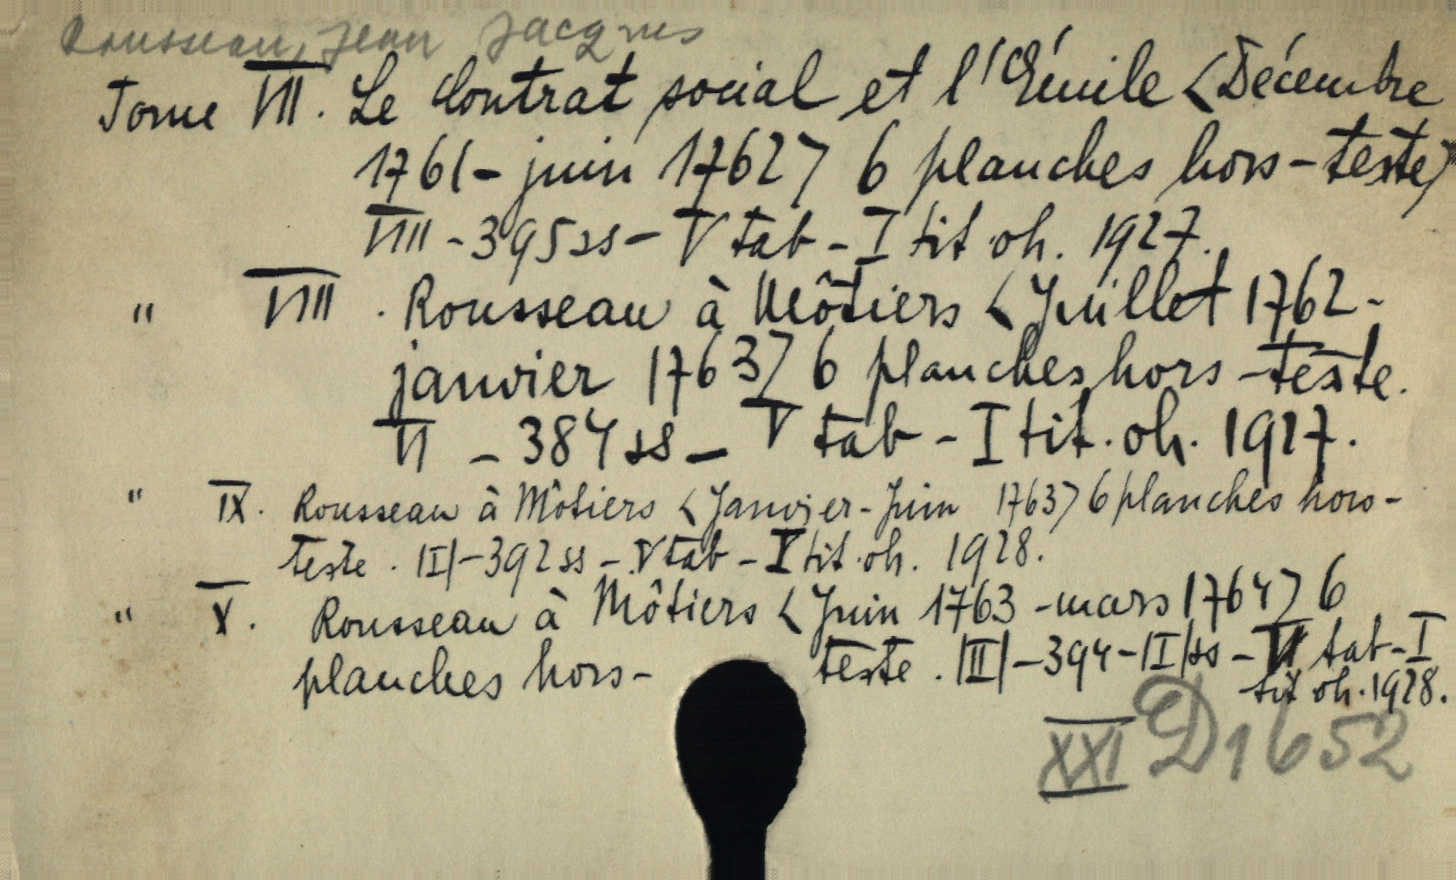 Rousseau, Jean Jacques
Tome VII. Le Contrat social et l'Émile <Décembre
1761-juin 1762> 6 planches hors-texte)
VIII-395ss-V tab-I tit oh. 1927.
" VIII. Rousseau à Môtiers <Juillet 1762-
janvier 1763> 6 planches hors-texte.
VI - 384ss - V tab - I tit. oh. 1927.
" IX. Rousseau à Môtiers <Janvier-Juin 1763> 6 planches hors-
texte. |I|-392ss-V tab-I tit. oh. 1928.
" X. Rousseau à Môtiers <Juin 1763-mars 1764> 6
planches hors- texte. |II|-394-|I|ss-VI tab-I
tit oh. 1928.
XXI D1652